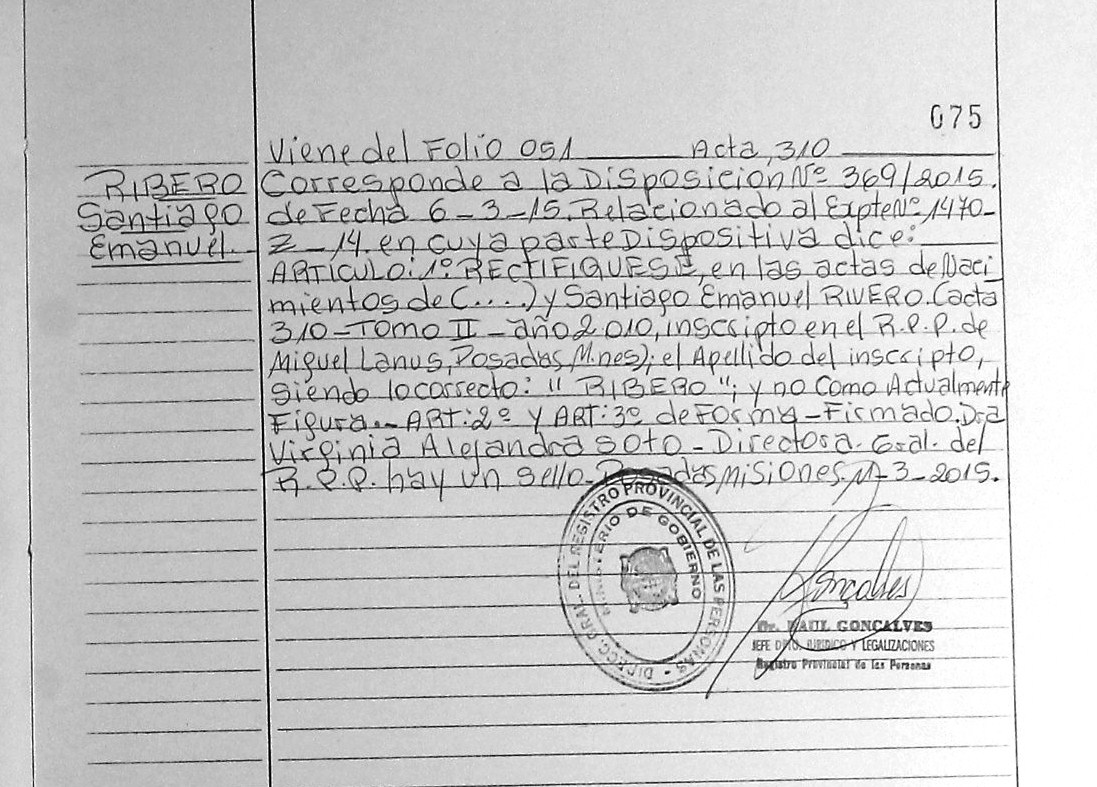 075
Viene del Folio 051 Acta, 310
RIBERO
Santiago
Emanuel.
Corresponde a la Disposicion Nº 369/2015.
de Fecha 6-3-15. Relacionado al Expte Nº 1470-
Z-14. en cuya parte Dispositiva dice:
ARTICULO: 1º RECTIFIQUESE, en las actas de Naci
mientos de (....) y Santiago Emanuel RIVERO. (acta
310-TOMO II-año 2010, inscripto en el R.P.P. de
Miguel Lanus, Posadas, Mnes); el Apellido del inscripto,
siendo lo correcto: "RIBERO"; y no Como Actualmente
Figura.- ART: 2º y ART: 3º de Forma-Firmado. Dra
Virginia Alejandra SOTO-Directora. Gral. del
R.P.P. hay un sello-Posadas Misiones. 11-3-2015.
DIRECC. GRAL. DEL REGISTRO PROVINCIAL DE LAS PERSONAS -
MINISTERIO DE GOBIERNO
Gonçalves
Dr. RAUL GONCALVES
JEFE DPTO. JURIDICO Y LEGALIZACIONES
Registro Provincial de las Personas